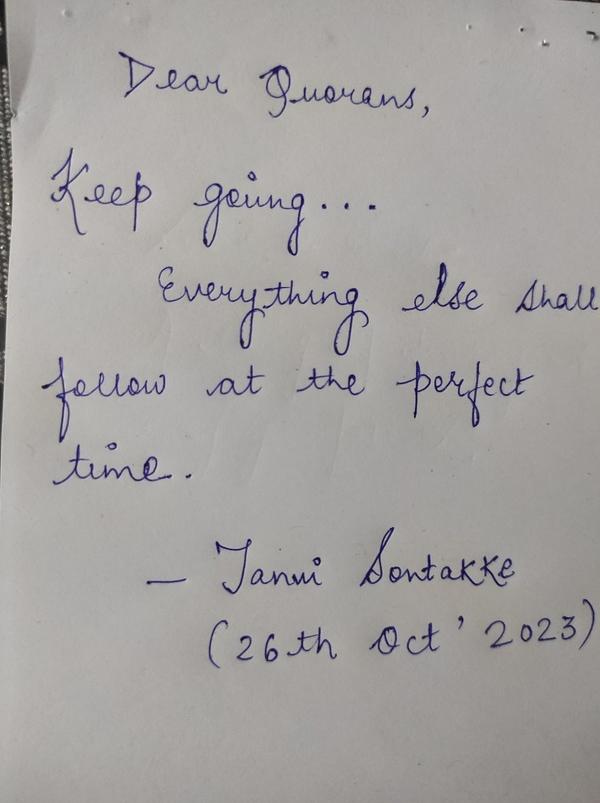 Dear Quorans,
Keep going...
Everything else shall
follow at the perfect
time.
– Tanvi Sontakke
(26th Oct' 2023)